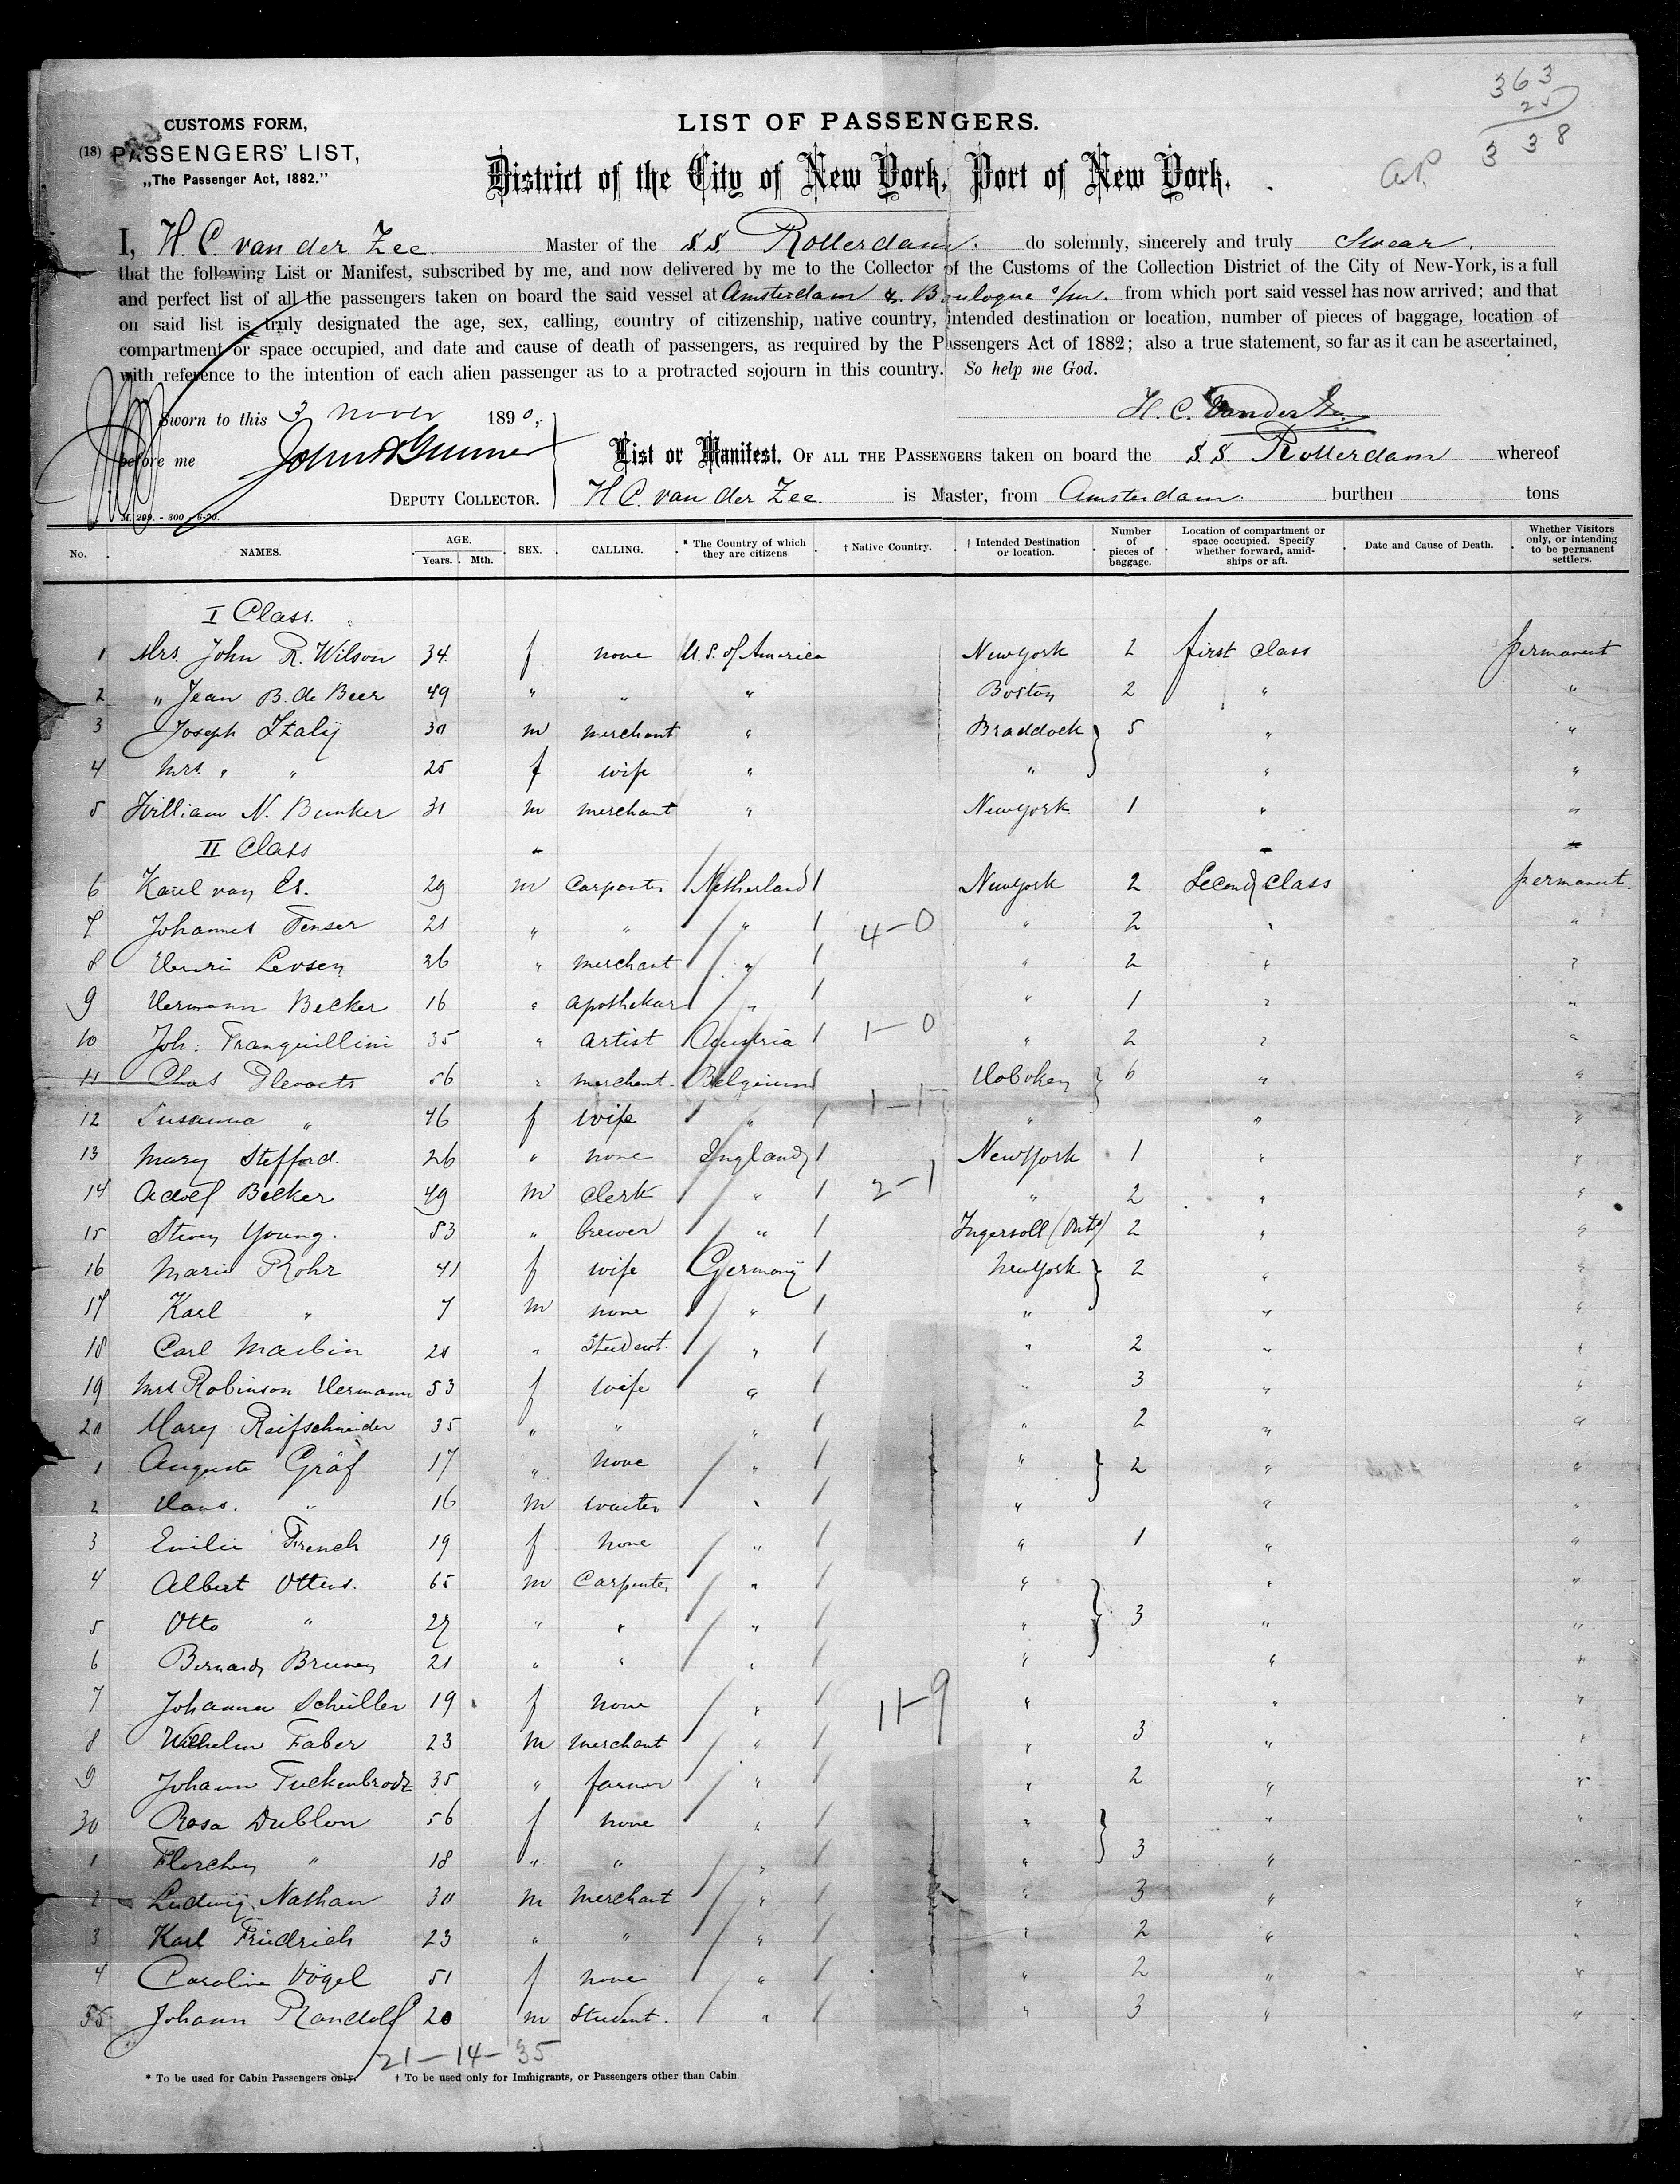 363
25
338
AP.
CUSTOMS FORM,
(18) PASSENGERS' LIST,
„The Passenger Act, 1882."
LIST OF PASSENGERS.
District of the City of New York, Port of New York.
I, H. C. van der Zee Master of the S.S. Rotterdam. do solemnly, sincerely and truly Swear.
that the following List or Manifest, subscribed by me, and now delivered by me to the Collector of the Customs of the Collection District of the City of New-York, is a full
and perfect list of all the passengers taken on board the said vessel at Amsterdam & Boulogne s/m. from which port said vessel has now arrived; and that
on said list is truly designated the age, sex, calling, country of citizenship, native country, intended destination or location, number of pieces of baggage, location of
compartment or space occupied, and date and cause of death of passengers, as required by the Passengers Act of 1882; also a true statement, so far as it can be ascertained,
with reference to the intention of each alien passenger as to a protracted sojourn in this country. So help me God.
H. C. van der Zee
Sworn to this 3 Novr 1890,
before me
DEPUTY COLLECTOR.
List or Manifest. OF ALL THE PASSENGERS taken on board the S.S. Rotterdam whereof
H C. van der Zee. is Master, from Amsterdam. burthen tons
M. 299. - 300 - 6-90.
No. NAMES. AGE. Years. Mth. SEX. CALLING. * The Country of which they are citizens † Native Country. † Intended Destination or location. Number of pieces of baggage. Location of compartment or space occupied. Specify whether forward, amidships or aft. Date and Cause of Death. Whether Visitors only, or intending to be permanent settlers.
I Class.
1 Mrs. John R. Wilson 34. f none U.S. of America New York 2 first class permanent
2 „ Jean B. de Beer 49 " " " Boston 2 " "
3 Joseph Italij 30 m merchant " Braddock 5 " "
4 Mrs. " " 25 f wife " " " "
5 William N. Bunker 31 m merchant " New York 1 " "
II Class
6 Karel van Es. 29 m Carpenter Netherland New York 2 Second class permanent.
7 Johannes Tenser 21 " " " 4-0 " 2 " "
8 Henri Levsen 26 " merchant " " 2 " "
9 Hermann Becker 16 " apothekar " " 1 " "
10 Joh. Tranquillini 35 " artist Austria 1-0 " 2 " "
11 Chas Plevoets 56 " merchant Belgium Hoboken 6 " "
12 Susanna " 46 f wife " 1-1 " " "
13 Mary Stefford. 26 " none England New York 1 " "
14 Adolf Becker 49 m clerk " 2-1 " 2 " "
15 Young. 53 " brewer " Ingersoll (Onto) 2 " "
16 Marie Rohr 41 f wife Germany New York 2 " "
17 Karl " 7 m none " " " "
18 Carl 21 " Student. " " 2 " "
19 Mrs Robinson Hermann 53 f wife " " 3 " "
20 Mary Reifschneider 35 " " " " 2 " "
1 Auguste Gräf 17 " none " " 2 " "
2 Hans. " 16 m waiter " " " "
3 Emilie French 19 f none " " 1 " "
4 Albert Ottens. 65 m Carpenter " " " "
5 Otto " 27 " " " " 3 " "
6 Bernard Brunen 21 " " " " " "
7 Johanna Schüller 19 f none " 11-9 " " "
8 Wilhelm Faber 23 m merchant " " 3 " "
9 Johann Tuckenbrodz 35 " farmer " " 2 " "
30 Rosa Dublon 56 f none " " " "
1 Florchen " 18 " " " " 3 " "
2 Ludwig Nathan 30 m merchant " " 3 " "
3 Karl Fridrich 23 " " " " 2 " "
4 Caroline Vögel 51 f none " " 2 " "
35 Johann Randolf 20 m Student. " " 3 " "
21-14-35
* To be used for Cabin Passengers only. † To be used only for Immigrants, or Passengers other than Cabin.